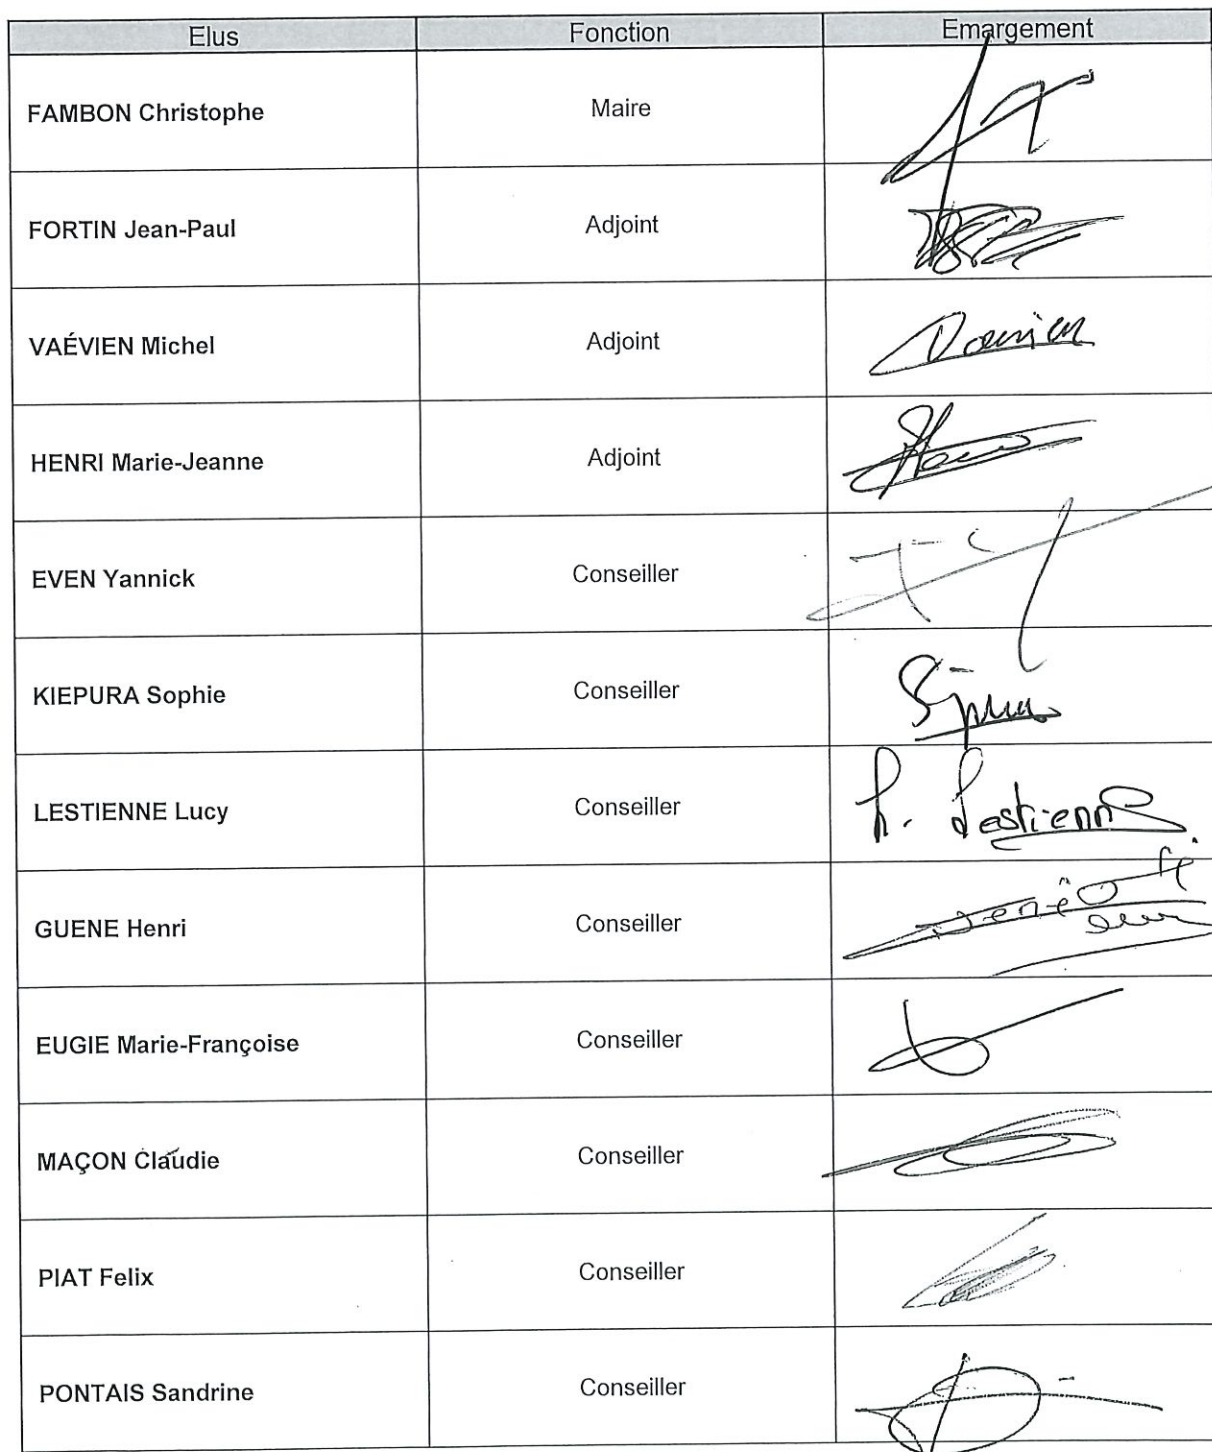 Elus Fonction Emargement
FAMBON Christophe Maire
FORTIN Jean-Paul Adjoint
VAÉVIEN Michel Adjoint
HENRI Marie-Jeanne Adjoint
EVEN Yannick Conseiller
KIEPURA Sophie Conseiller
LESTIENNE Lucy Conseiller L. Lestienne
GUENE Henri Conseiller
EUGIE Marie-Françoise Conseiller
MAÇON Claudie Conseiller
PIAT Felix Conseiller
PONTAIS Sandrine Conseiller